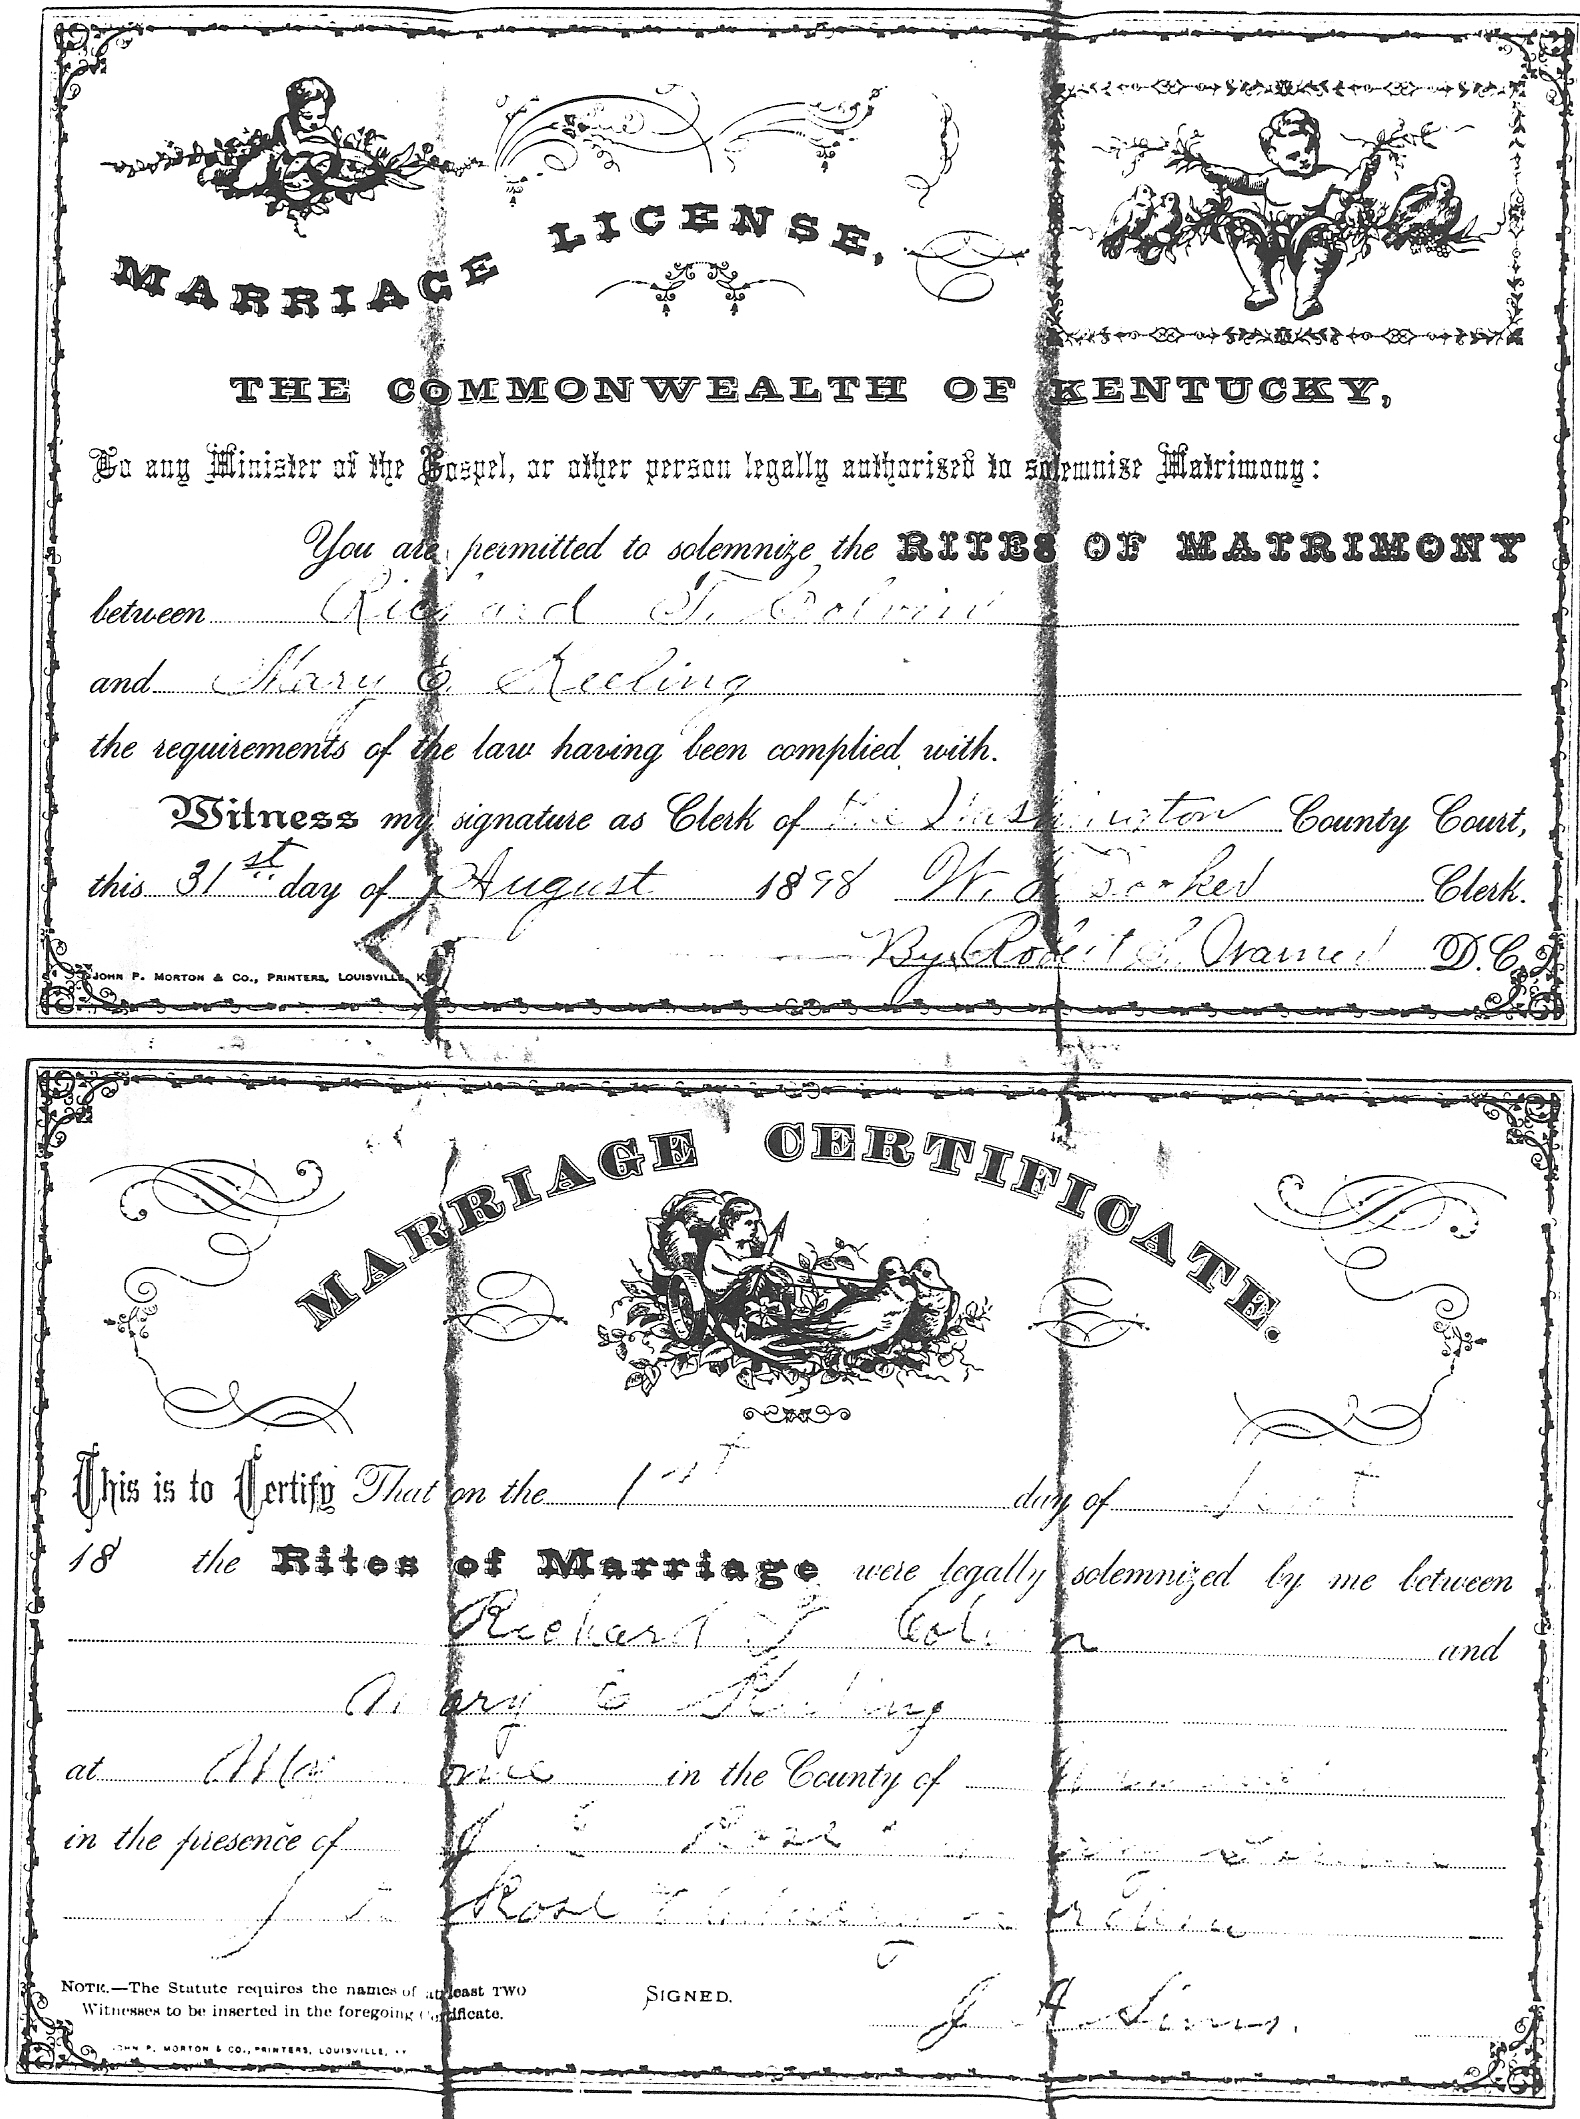 MARRIAGE LICENSE,
THE COMMONWEALTH OF KENTUCKY,
To any Minister of the Gospel, or other person legally authorized to solemnize Matrimony:
You are permitted to solemnize the RITES OF MATRIMONY
between Richard T. Colvin
and Mary E. Keeling
the requirements of the law having been complied with.
Witness my signature as Clerk of the Washington County Court,
this 31st day of August 1898 W. Booker Clerk.
By Robert D.C.
JOHN P. MORTON & CO., PRINTERS, LOUISVILLE, KY
MARRIAGE CERTIFICATE.
This is to Certify That on the 1st day of Sept
18 the Rites of Marriage were legally solemnized by me between
Richard T Colvin and
Mary E Keeling
at in the County of
in the presence of J
J Rose
NOTE.—The Statute requires the names of at least TWO
Witnesses to be inserted in the foregoing Certificate.
SIGNED.
J A Sims.
JOHN P. MORTON & CO., PRINTERS, LOUISVILLE, KY